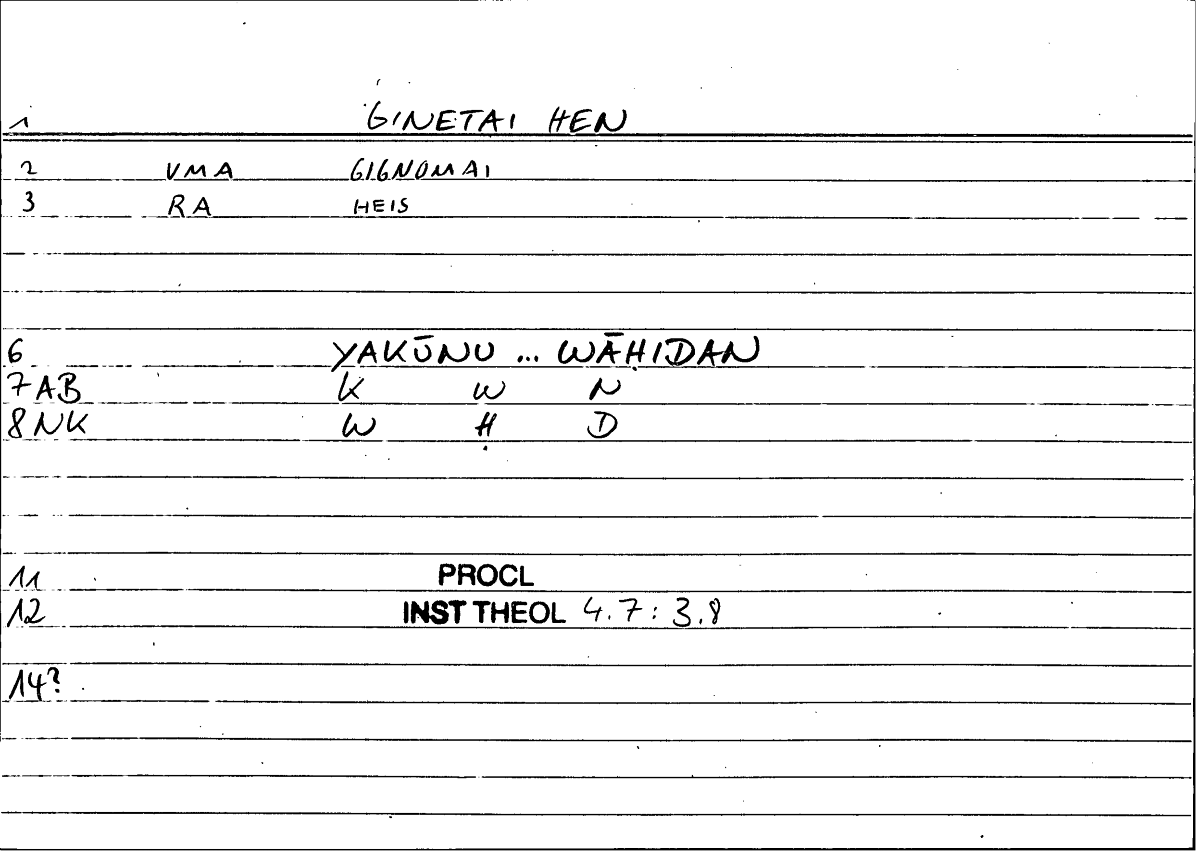 1 GINETAI HEN
2 VMA GIGNOMAI
3 RA HEIS
6 YAKŪNU ... WĀḤIDAN
7 AB K W N
8 NK W Ḥ D
11 PROCL
12 INST THEOL 4.7: 3.8
14?